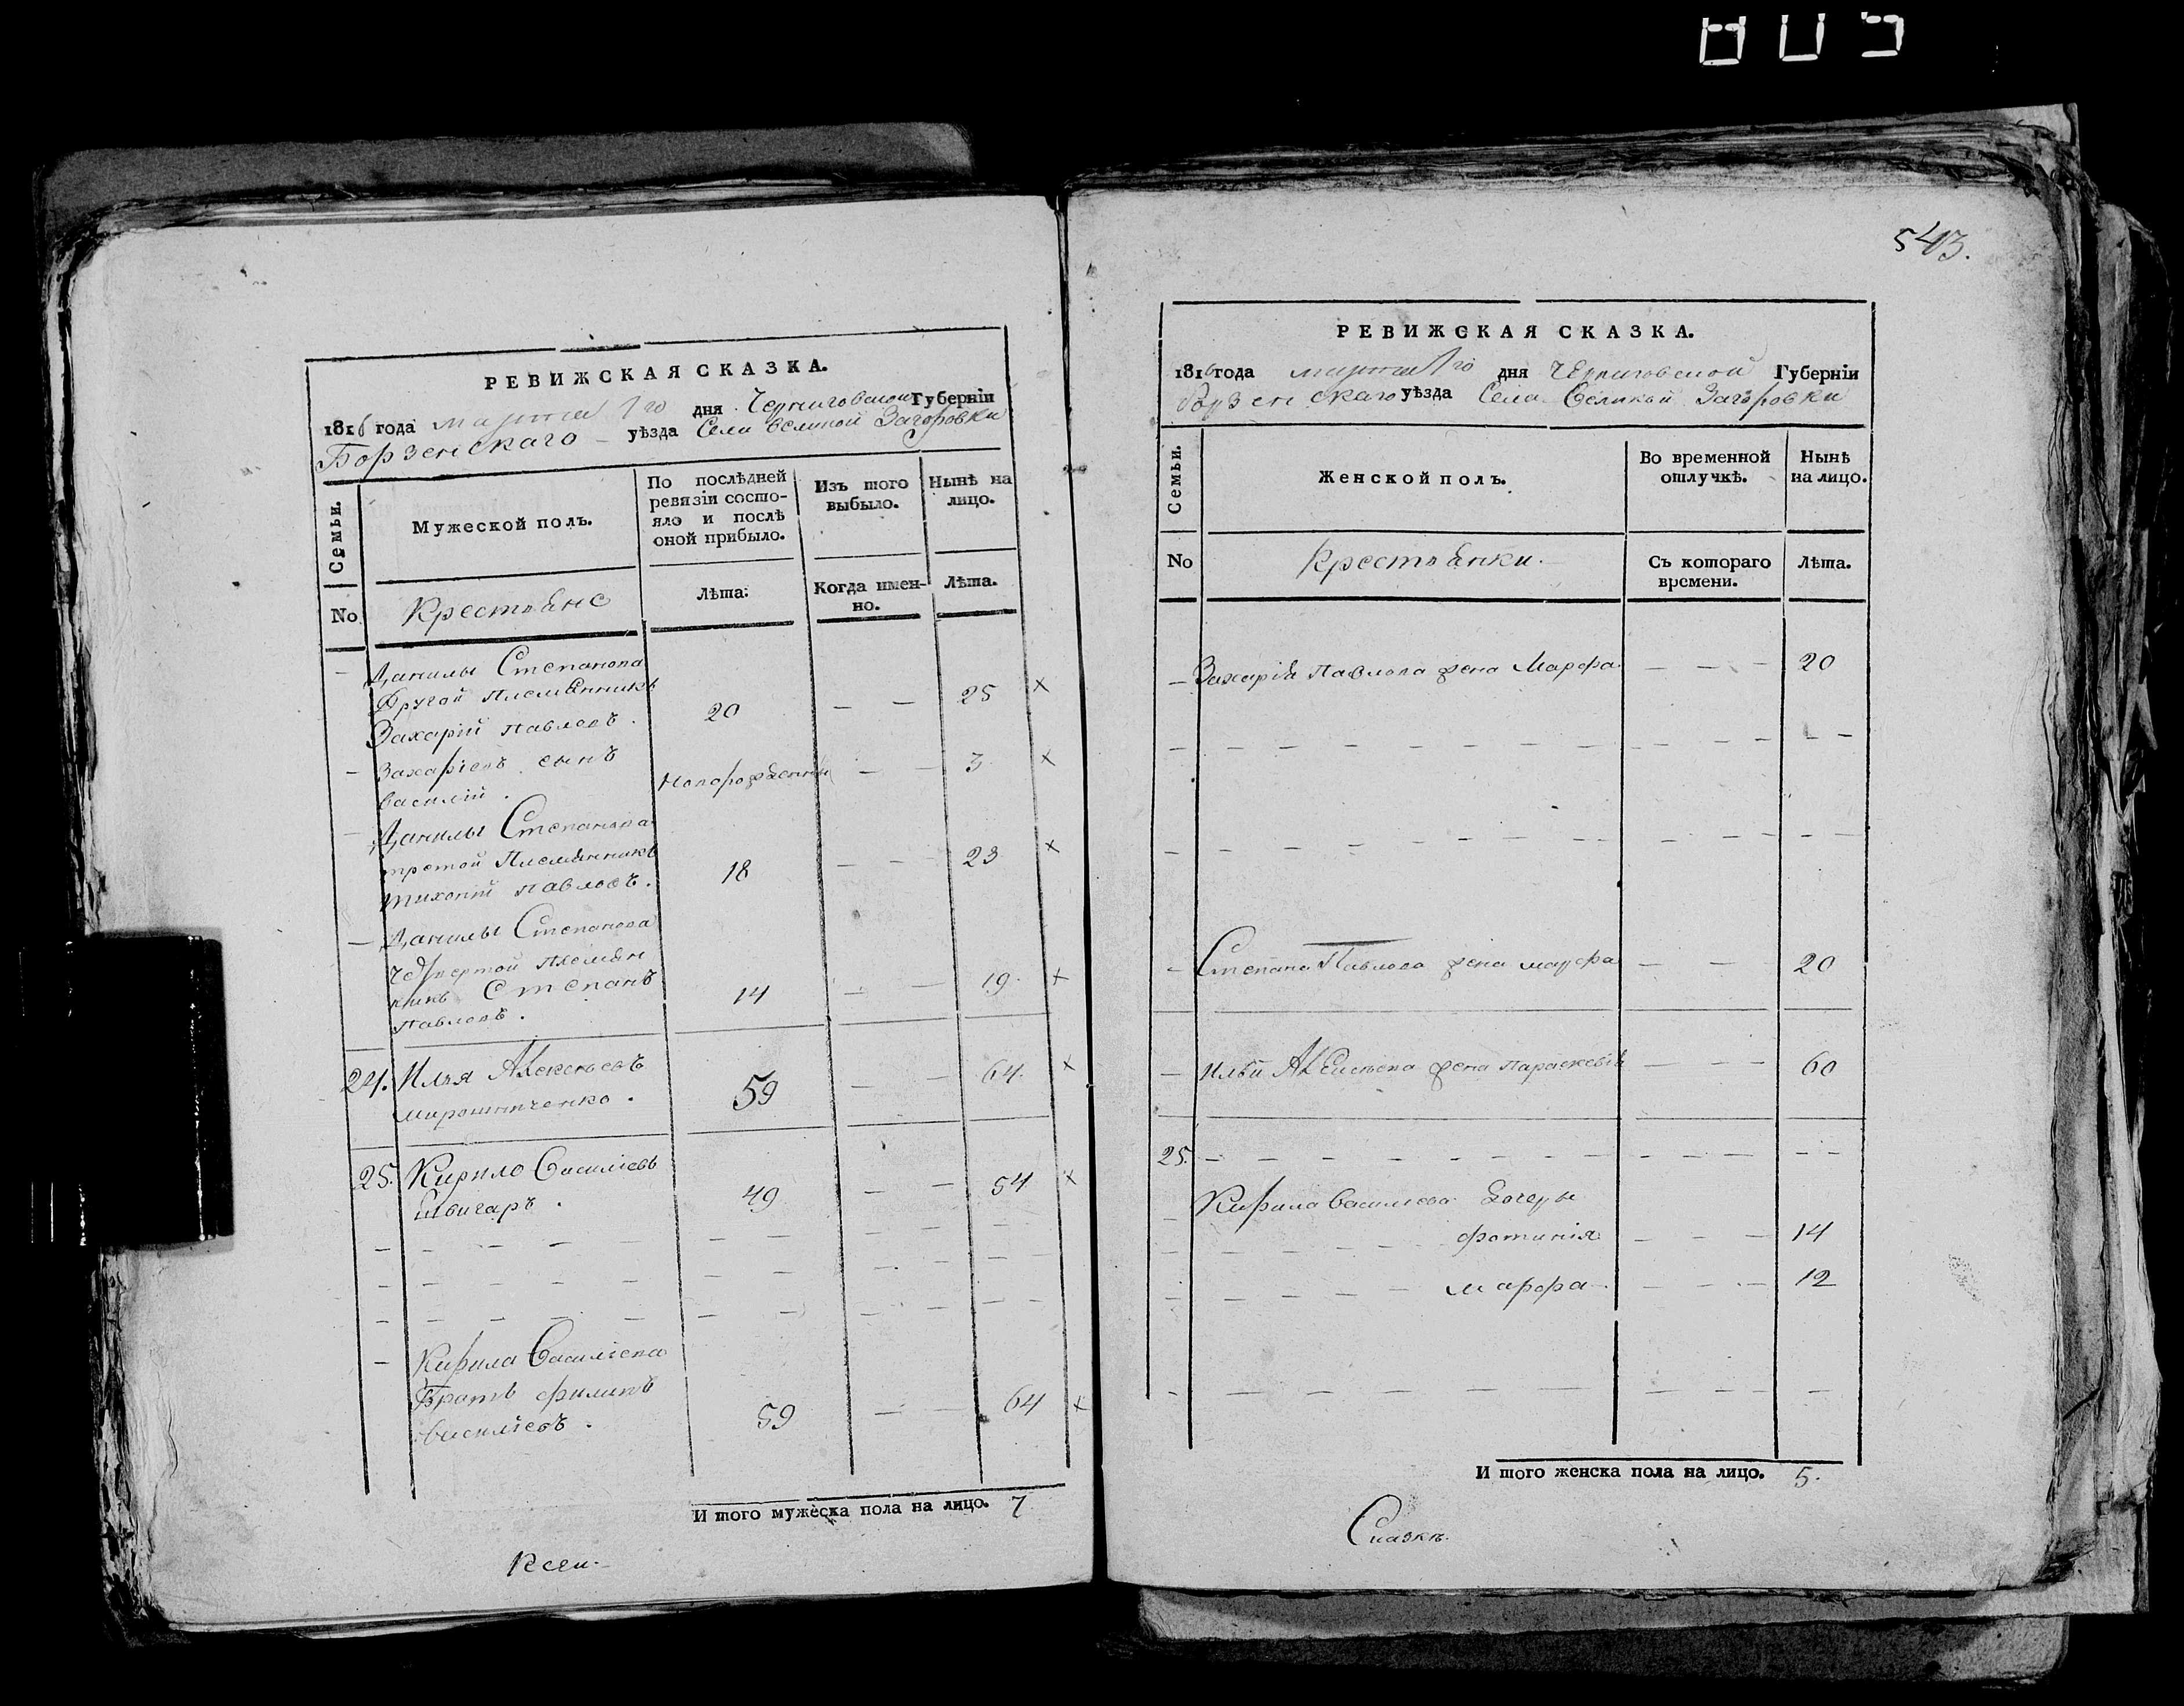 805
РЕВИЖСКАЯ СКАЗКА.
1816 года марта 1го дня Черниговской Губерніи
Борзенскаго уѣзда Села Великой Загоровки
Семьи.
Мужеской полъ.
По послѣдней ревизіи состояло и послѣ оной прибыло.
Изъ того выбыло.
Нынѣ на лицо.
No
Крестьяне
Лѣта.
Когда имен-но.
Лѣта.
— Данилы Степанова
другой племянникъ
Захарій Павловъ. 20 — — 25 ×
— Захаріевъ сынъ
Василій. Новорожденный — — 3 ×
— Данилы Степанова
третой племянникъ
Тихоній Павловъ. 18 — — 23 ×
— Данилы Степанова
четвертой племян
никъ Степанъ
Павловъ. 14 — — 19 ×
24. Илья Алексеевъ
Мирошниченко. 59 — — 64 ×
25. Кирило Василіевъ
Швигаръ. 49 — — 54 ×
— Кирила Василіева
Братъ Филипъ
Василіевъ. 59 — — 64 ×
И того мужеска пола на лицо. 7
Ксеи
543.
РЕВИЖСКАЯ СКАЗКА.
1816 года марта 1го дня Черниговской Губерніи
Борзенскаго уѣзда Села Великой Загоровки
Семьи.
Женской полъ.
Во временной отлучкѣ.
Нынѣ на лицо.
No
Крестьянки.
Съ котораго времени.
Лѣта.
— Захарія Павлова жена Марфа — — — 20
— Степана Павлова жена Марфа — — 20
— Ильи Алексеева жена Параскевія — — — 60
25.
— Кирила Василіева дочеры
Фотинія — — — 14
Марфа — — — 12
И того женска пола на лицо. 5.
Сказкѣ.